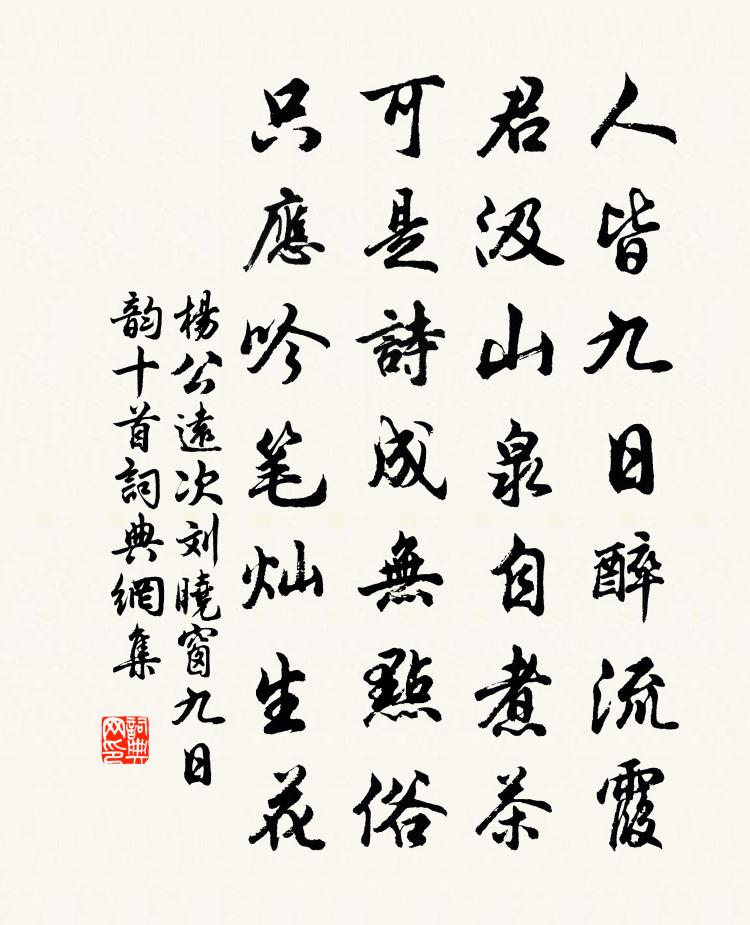 人皆九日醉流霞
君汲山泉自煮茶
可是詩成無點俗
只應吟笔灿生花
楊公遠次刘曉窗九日
韵十首詞典網集
詞典
网印